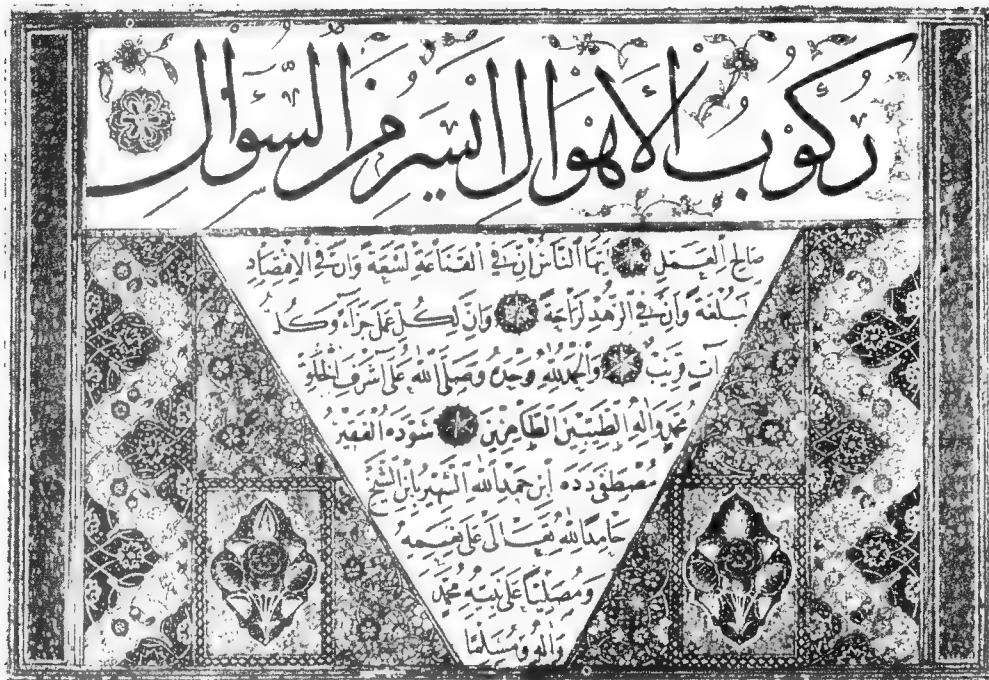 رُكُوبُ الْأَهْوَالِ أَيْسَرُ مِنَ السُّؤَالِ
صَالِحِ الْعَمَلِ أَيُّهَا النَّاسُ إِنَّ فِي الْقَنَاعَةِ لَسَعَةً وَإِنَّ فِي الْاِقْتِصَادِ
لَبُلْغَةً وَإِنَّ فِي الزُّهْدِ لَرَاحَةً وَإِنَّ لِكُلِّ عَمَلٍ جَزَاءً وَكُلُّ
آتٍ قَرِيبٌ وَالْحَمْدُ لِلّٰهِ وَحْدَهُ وَصَلَّى اللّٰهُ عَلَى أَشْرَفِ الْخَلْقِ
مُحَمَّدٍ وَآلِهِ الطَّيِّبِينَ الطَّاهِرِينَ سَوَّدَهُ الْفَقِيرُ
مُصْطَفَى دَدَه اِبْنِ حَمْدِ اللّٰهِ الشَّهِيرُ بِابْنِ الشَّيْخِ
حَامِدًا لِلّٰهِ تَعَالَى عَلَى نِعَمِهِ
وَمُصَلِّيًا عَلَى نَبِيِّهِ مُحَمَّدٍ
وَآلِهِ وَمُسَلِّمًا